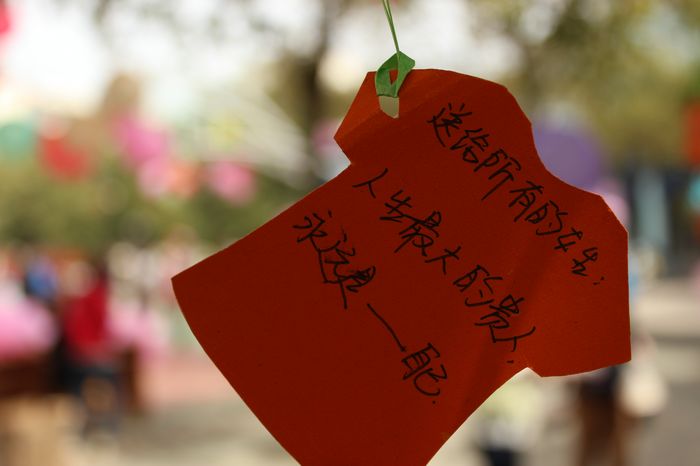 送给所有的女生:
人生最大的贵人,
永远是一自己.